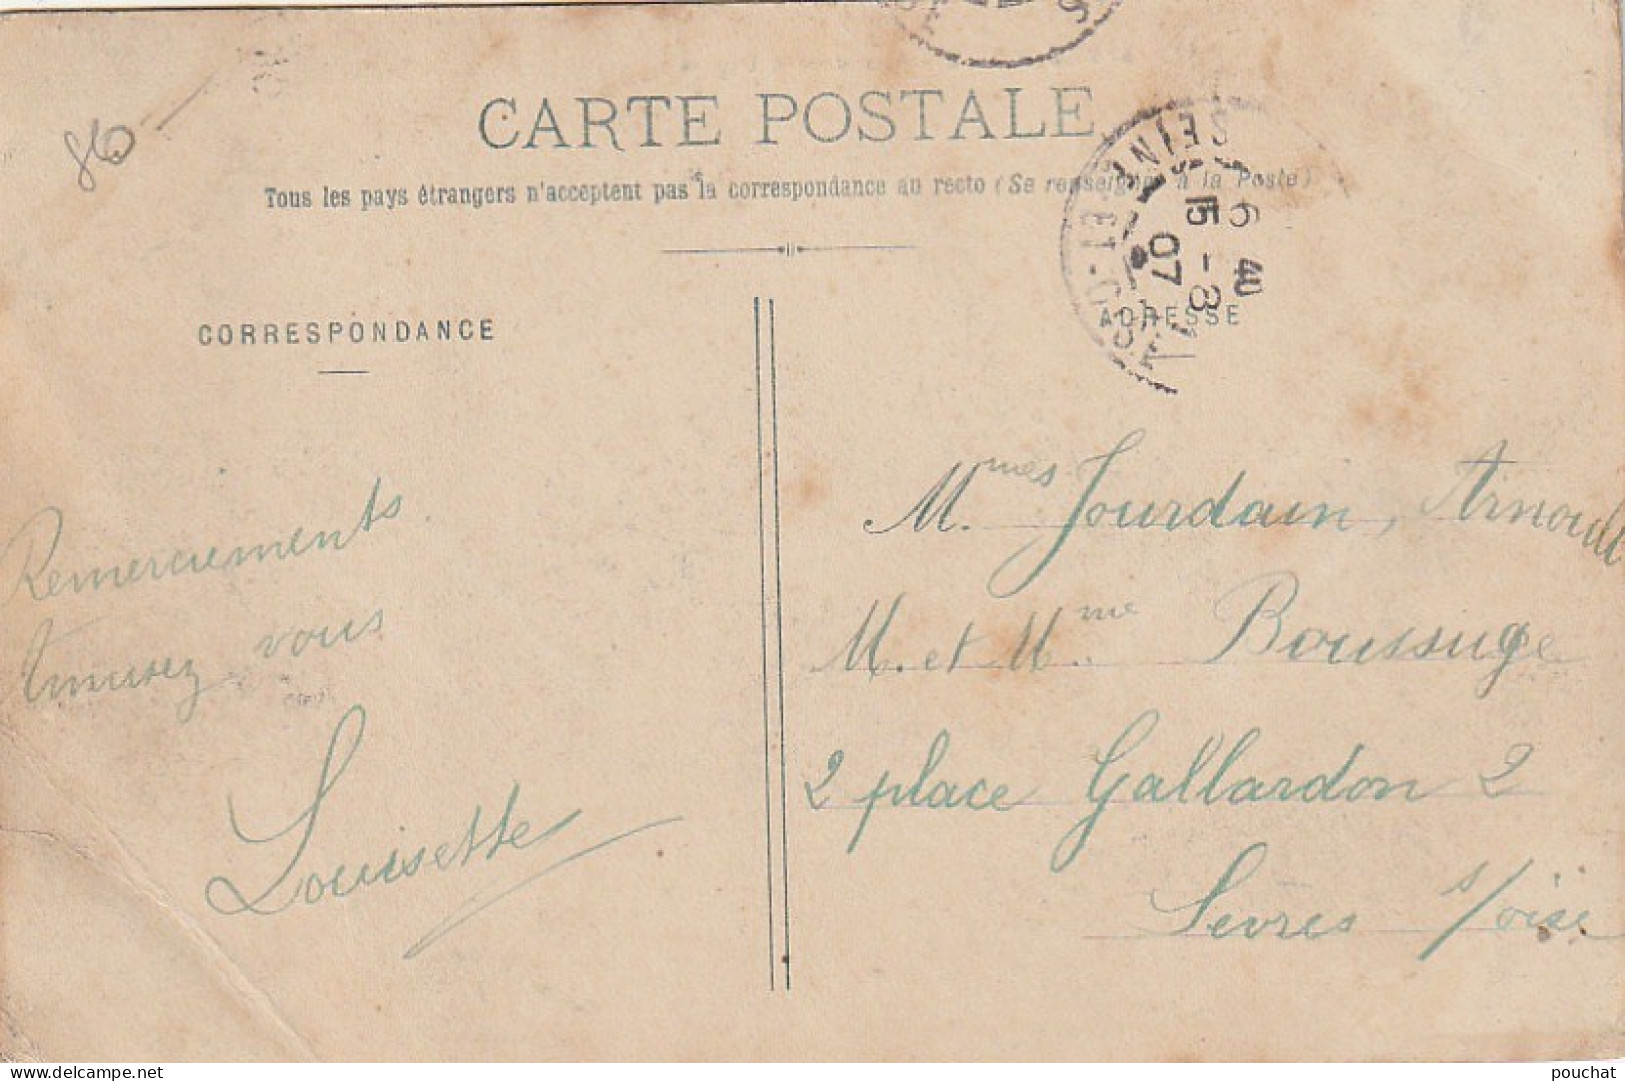 86
CARTE POSTALE
Tous les pays étrangers n'acceptent pas la correspondance au recto (Se renseigner à la Poste)
SEINE-ET-OISE
6 40
15-3
07
CORRESPONDANCE
ADRESSE
Remerciements.
Amusez vous
Louisette
Mmes Jourdain, Arnoult
M. et Mme Boussuge
2 place Gallardon 2
Sevres s/oise
pouchat